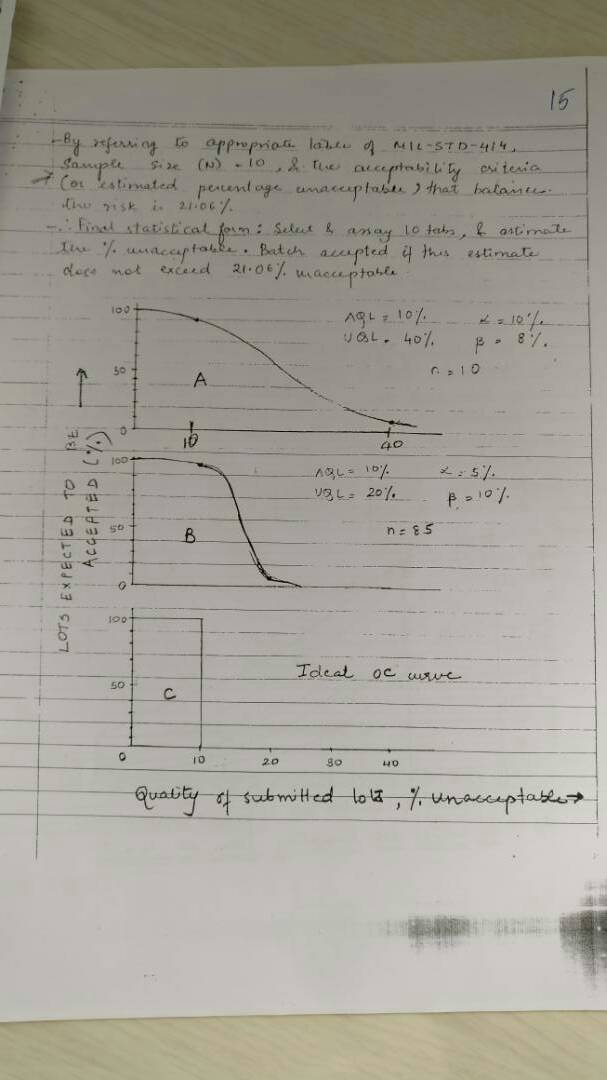 15
- By referring to appropriate table of MIL-STD-414,
Sample size (N) = 10, & the acceptability criteria
→ (or estimated percentage unacceptable) that balances
the risk is 21.06%.
- ∴ Final statistical form: Select & assay 10 tabs, & estimate
the % unacceptable. Batch accepted if this estimate
does not exceed 21.06% unacceptable.
100
50
0
A
10
40
AQL = 10%. α = 10%.
UQL = 40%. β = 8%.
n = 10
LOTS EXPECTED TO BE
ACCEPTED (%)
100
50
0
B
AQL = 10%. α = 5%.
UQL = 20%. β = 10%.
n = 85
100
50
0
C
Ideal OC curve
10 20 30 40
Quality of submitted lots, % unacceptable →